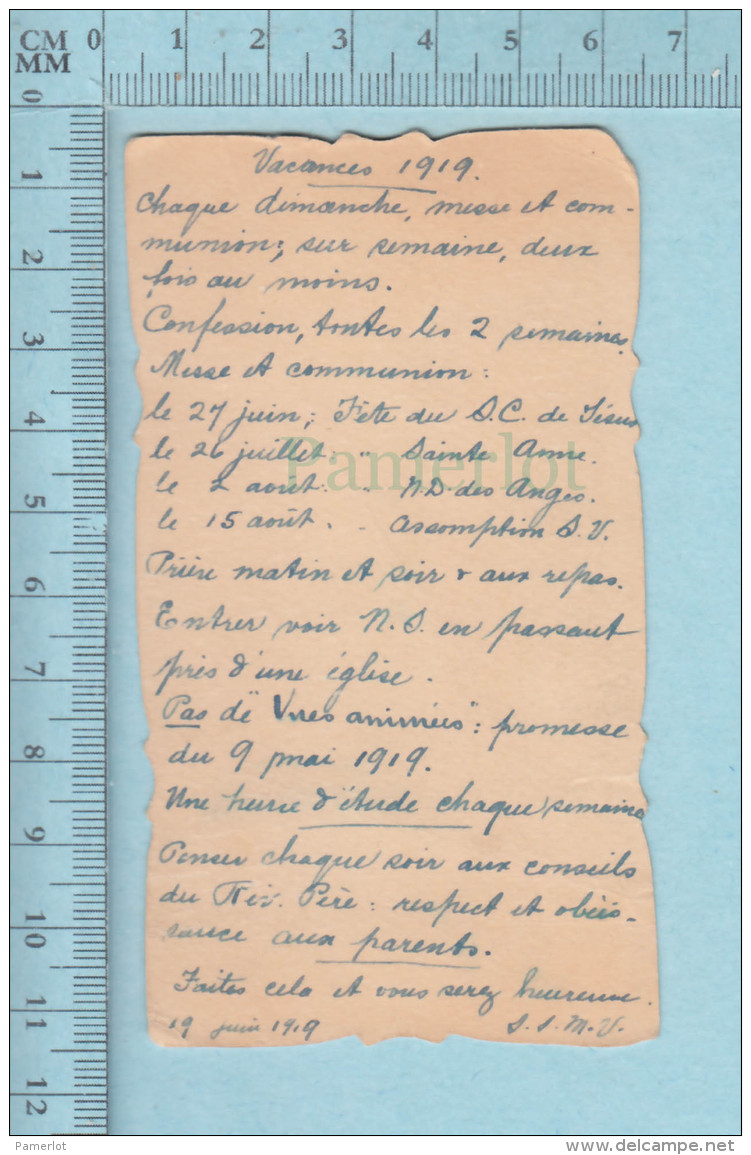 CM 0 1 2 3 4 5 6 7
MM
0
1
2
3
4
5
6
7
8
9
10
11
12
Vacances 1919.
Chaque dimanche, messe et com-
munion; sur semaine, deux
fois au moins.
Confession, toutes les 2 semaines.
Messe et communion:
le 27 juin; Fête du S.C. de Jésus
le 26 juillet: " Sainte Anne.
le 2 août: " N.D. des Anges.
le 15 août. " Assomption S.V.
Prière matin et soir & aux repas.
Entrer voir N.S. en passant
près d'une église.
Pas de "Vues animées": promesse
du 9 mai 1919.
Une heure d'étude chaque semaine
Penser chaque soir aux conseils
du Rév. Père: respect et obéis-
sance aux parents.
Faites cela et vous serez heureuse.
19 juin 1919 S.S.M.V.
Pamerlot
Pamerlot
www.delcampe.net